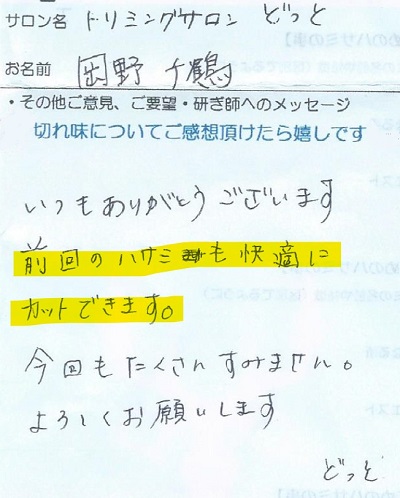 サロン名 トリミングサロン どっと
お名前 岡野 千鶴
・その他ご意見、ご要望・研ぎ師へのメッセージ
切れ味についてご感想頂けたら嬉しです
いつもありがとうございます
前回のハサミも快適に
カットできます。
今回もたくさんすみません。
よろしくお願いします
どっと